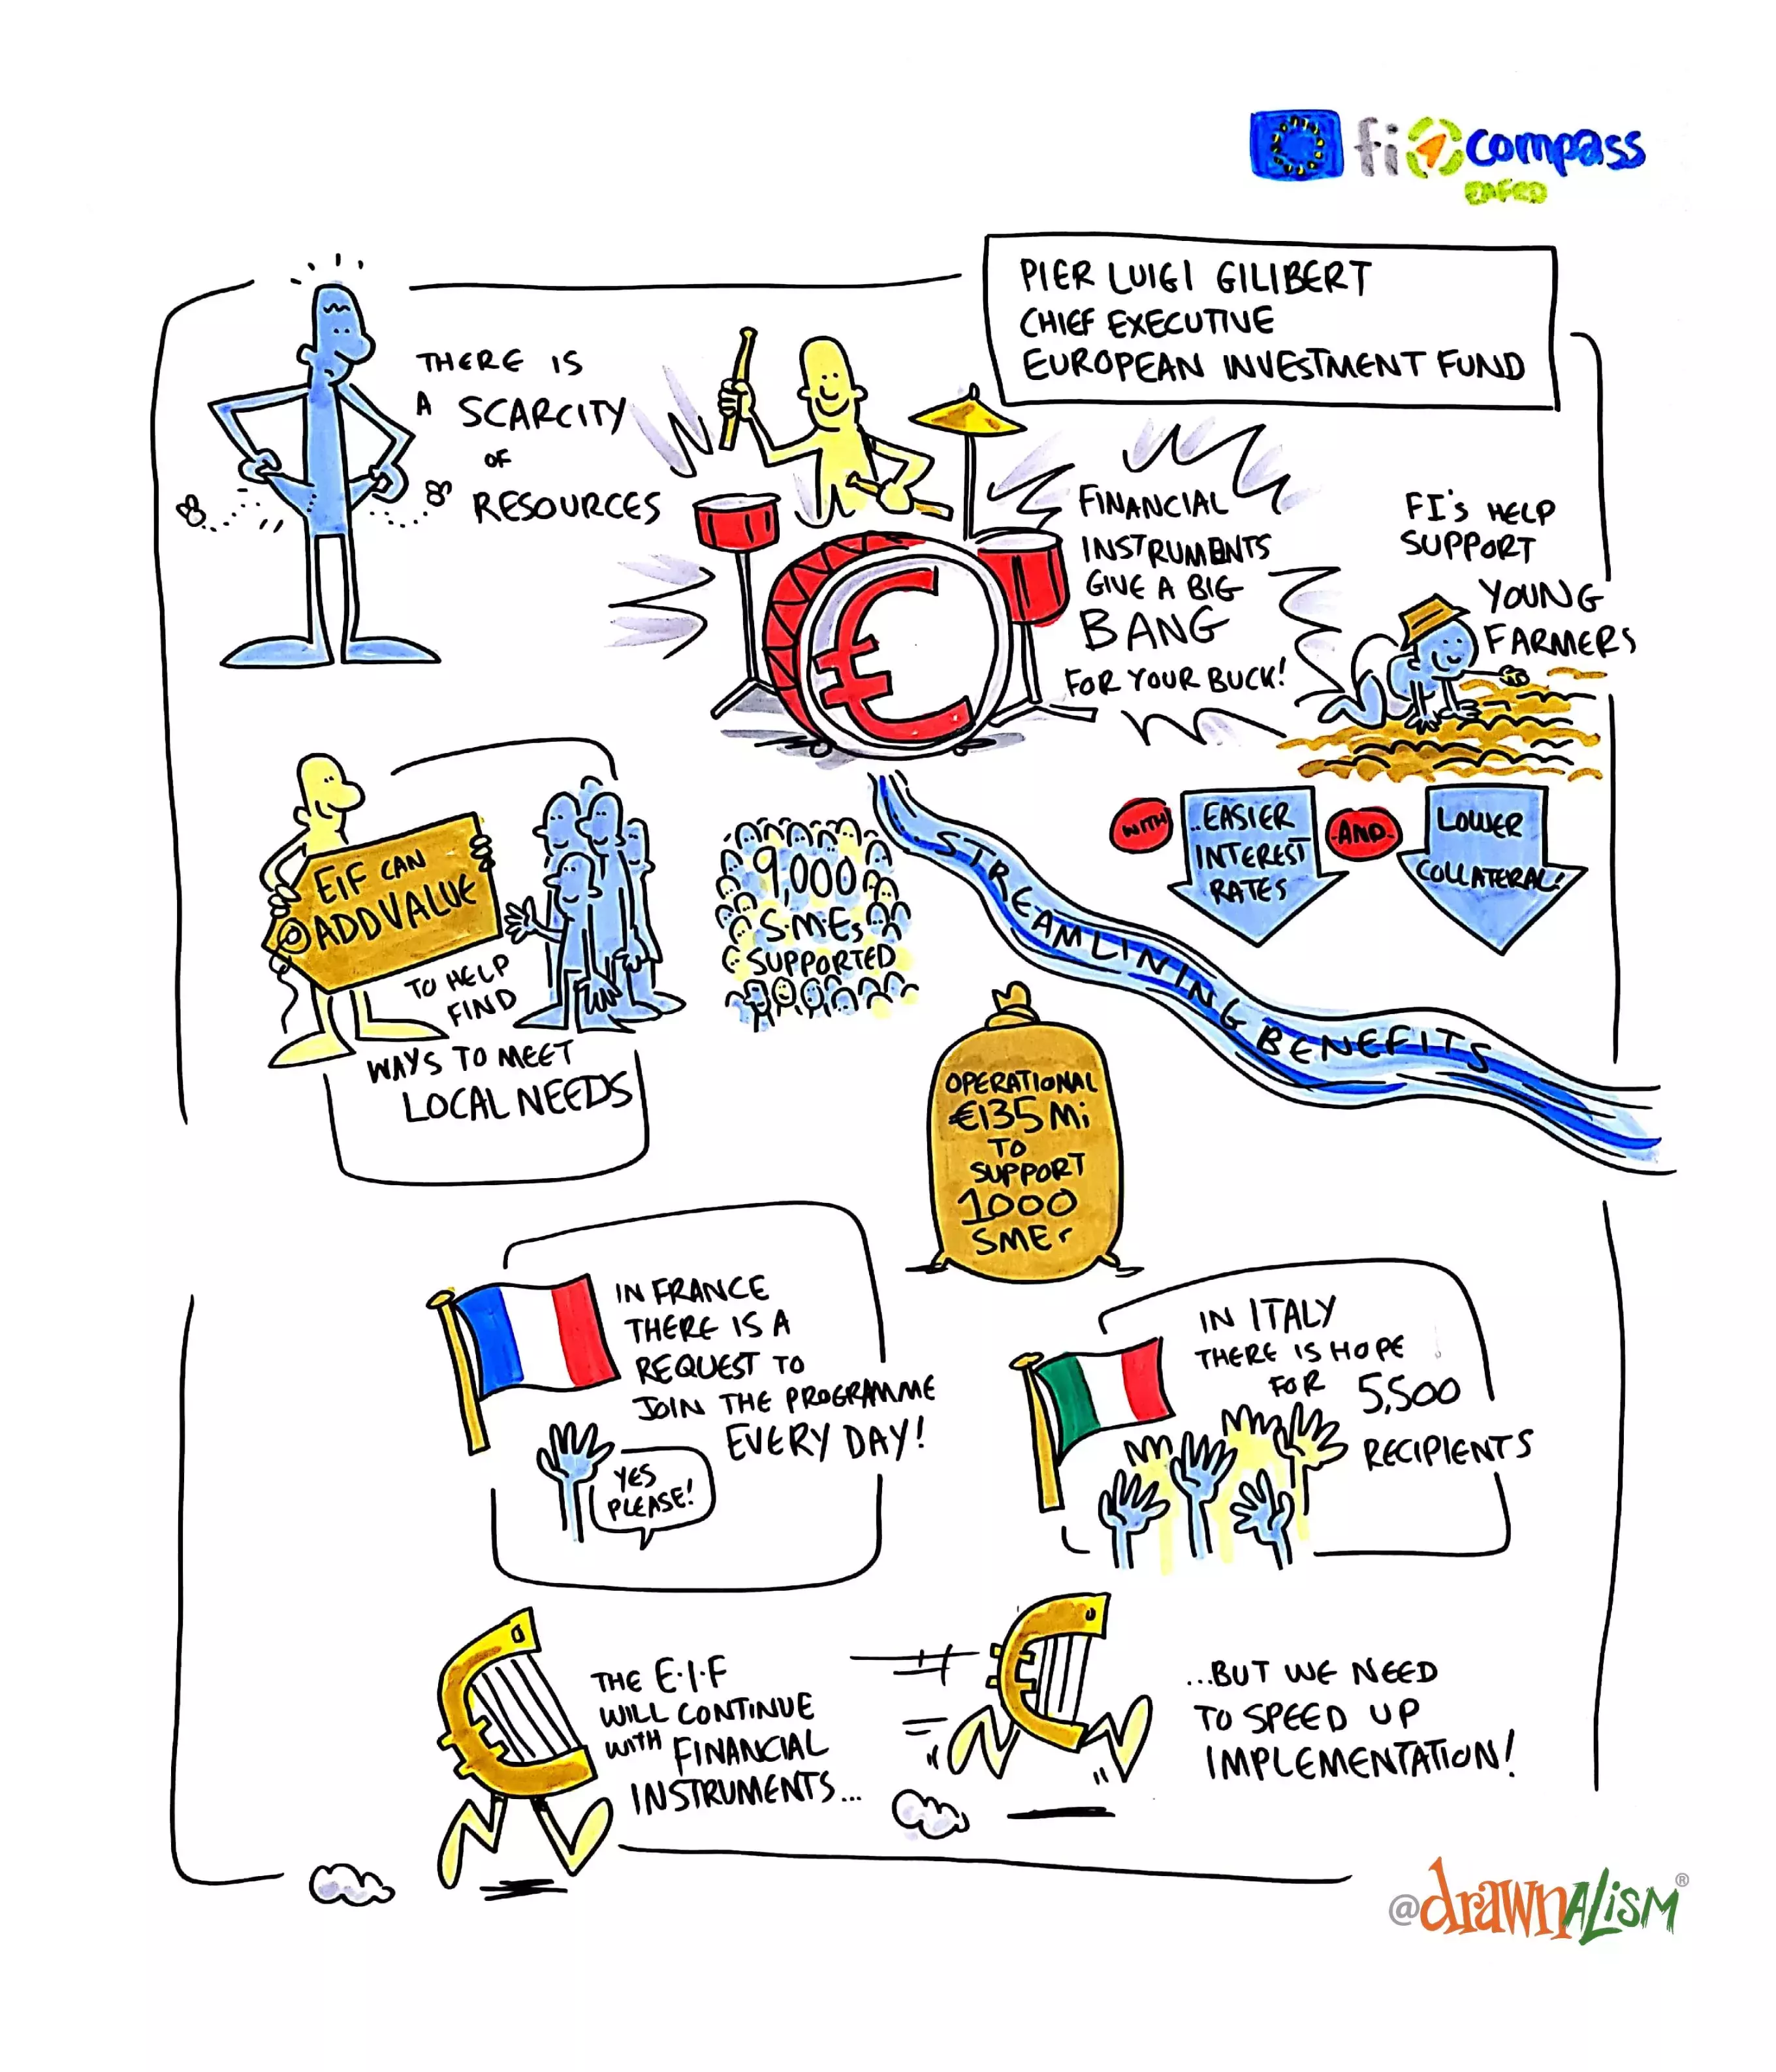 fi compass
PIER LUIGI GILIBERT
CHIEF EXECUTIVE
EUROPEAN INVESTMENT FUND
THERE IS
A SCARCITY
OF
RESOURCES
FINANCIAL
INSTRUMENTS
GIVE A BIG
BANG
FOR YOUR BUCK!
FI'S HELP
SUPPORT
YOUNG
FARMERS
WITH
EASIER
INTEREST
RATES
AND
LOWER
COLLATERAL!
EIF CAN
ADD VALUE
TO HELP
FIND
WAYS TO MEET
LOCAL NEEDS
9,000
S.M.Es
SUPPORTED
STREAMLINING BENEFITS
OPERATIONAL
€135 Mi
TO
SUPPORT
1000
SMEs
IN FRANCE
THERE IS A
REQUEST TO
JOIN THE PROGRAMME
EVERY DAY!
YES
PLEASE!
IN ITALY
THERE IS HOPE
FOR 5,500
RECIPIENTS
THE E.I.F
WILL CONTINUE
WITH FINANCIAL
INSTRUMENTS...
...BUT WE NEED
TO SPEED UP
IMPLEMENTATION!
@drawnALiSM®